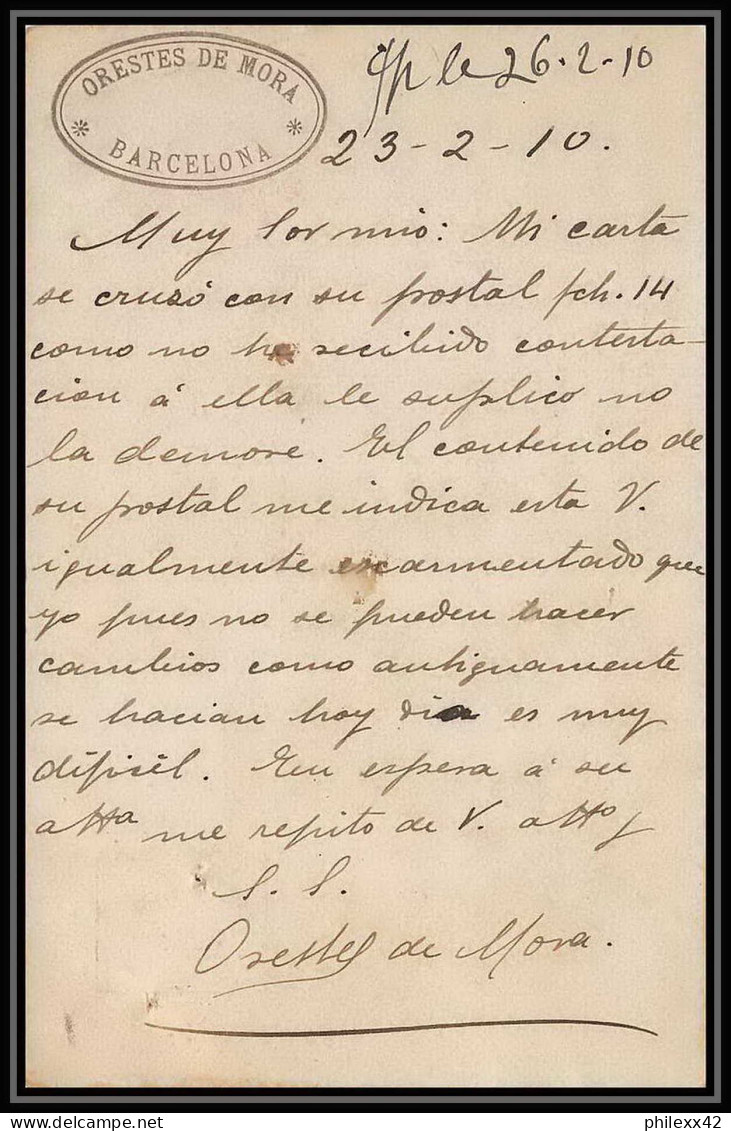 ORESTES DE MORA
* BARCELONA *
le 26-2-10
23-2-10.
Muy Sor mio: Mi carta
se cruzó con su postal fch. 14
como no he recibido contesta-
cion á ella le suplico no
la demore. El contenido de
su postal me indica esta V.
igualmente escarmentado que
yo pues no se pueden hacer
cambios como antiguamente
se hacian hoy dia es muy
difisil. En espera á su
atta me repito de V. atto y
S. S.
Orestes de Mora.
philexx42